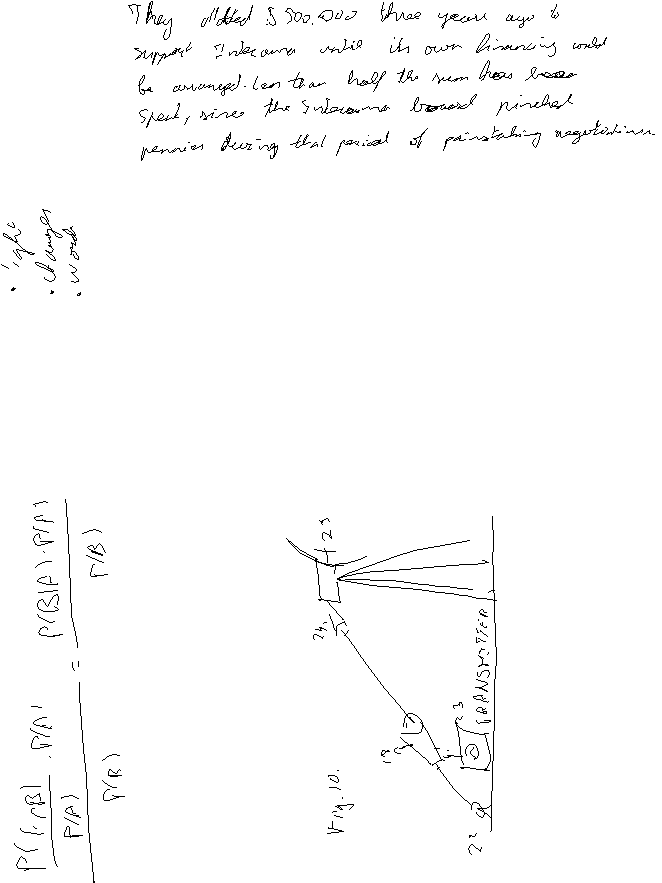 They allotted $ 500.000 three years ago to
support Intercama until its own financing could
be arranged. Less than half the sum has been
spent, since the Intercama board pinched
pennies during that period of painstaking negotiations
• changes
• words
P(B|A) · P(A)
P(B)
=
· P(A)
P(A)
P(B)
25
24
18
23
TRANSMITTER
22
Fig. 10.